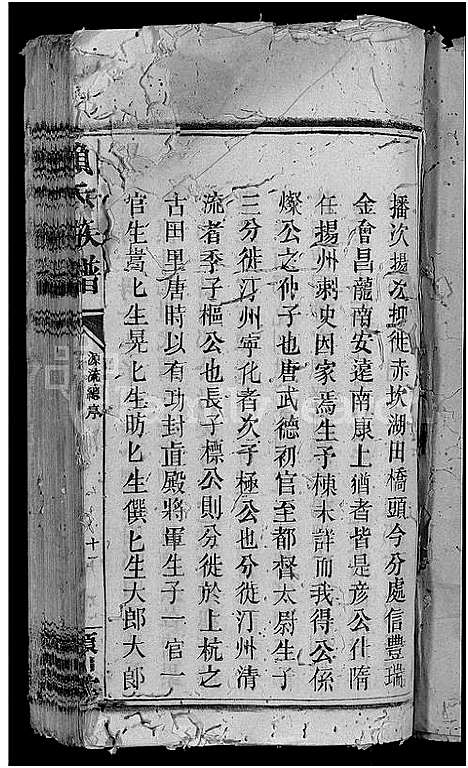 播次揚次抑徙赤坎湖田橋頭今分處信豐瑞
金會昌龍南安遠南康上猶者皆是彥公仕隋
任揚州刺史因家焉生子棟未詳而我得公係
燦公之仲子也唐武德初官至都督太尉生子
三分徙汀州寧化者次子極公也分徙汀州清
流者季子樞公也長子標公則分徙於上杭之
古田里唐時以有功封直殿將軍生子一官一
官生貴匕生晃匕生昉匕生僎匕生大郎大郎
賴氏族譜
源流總序
十一